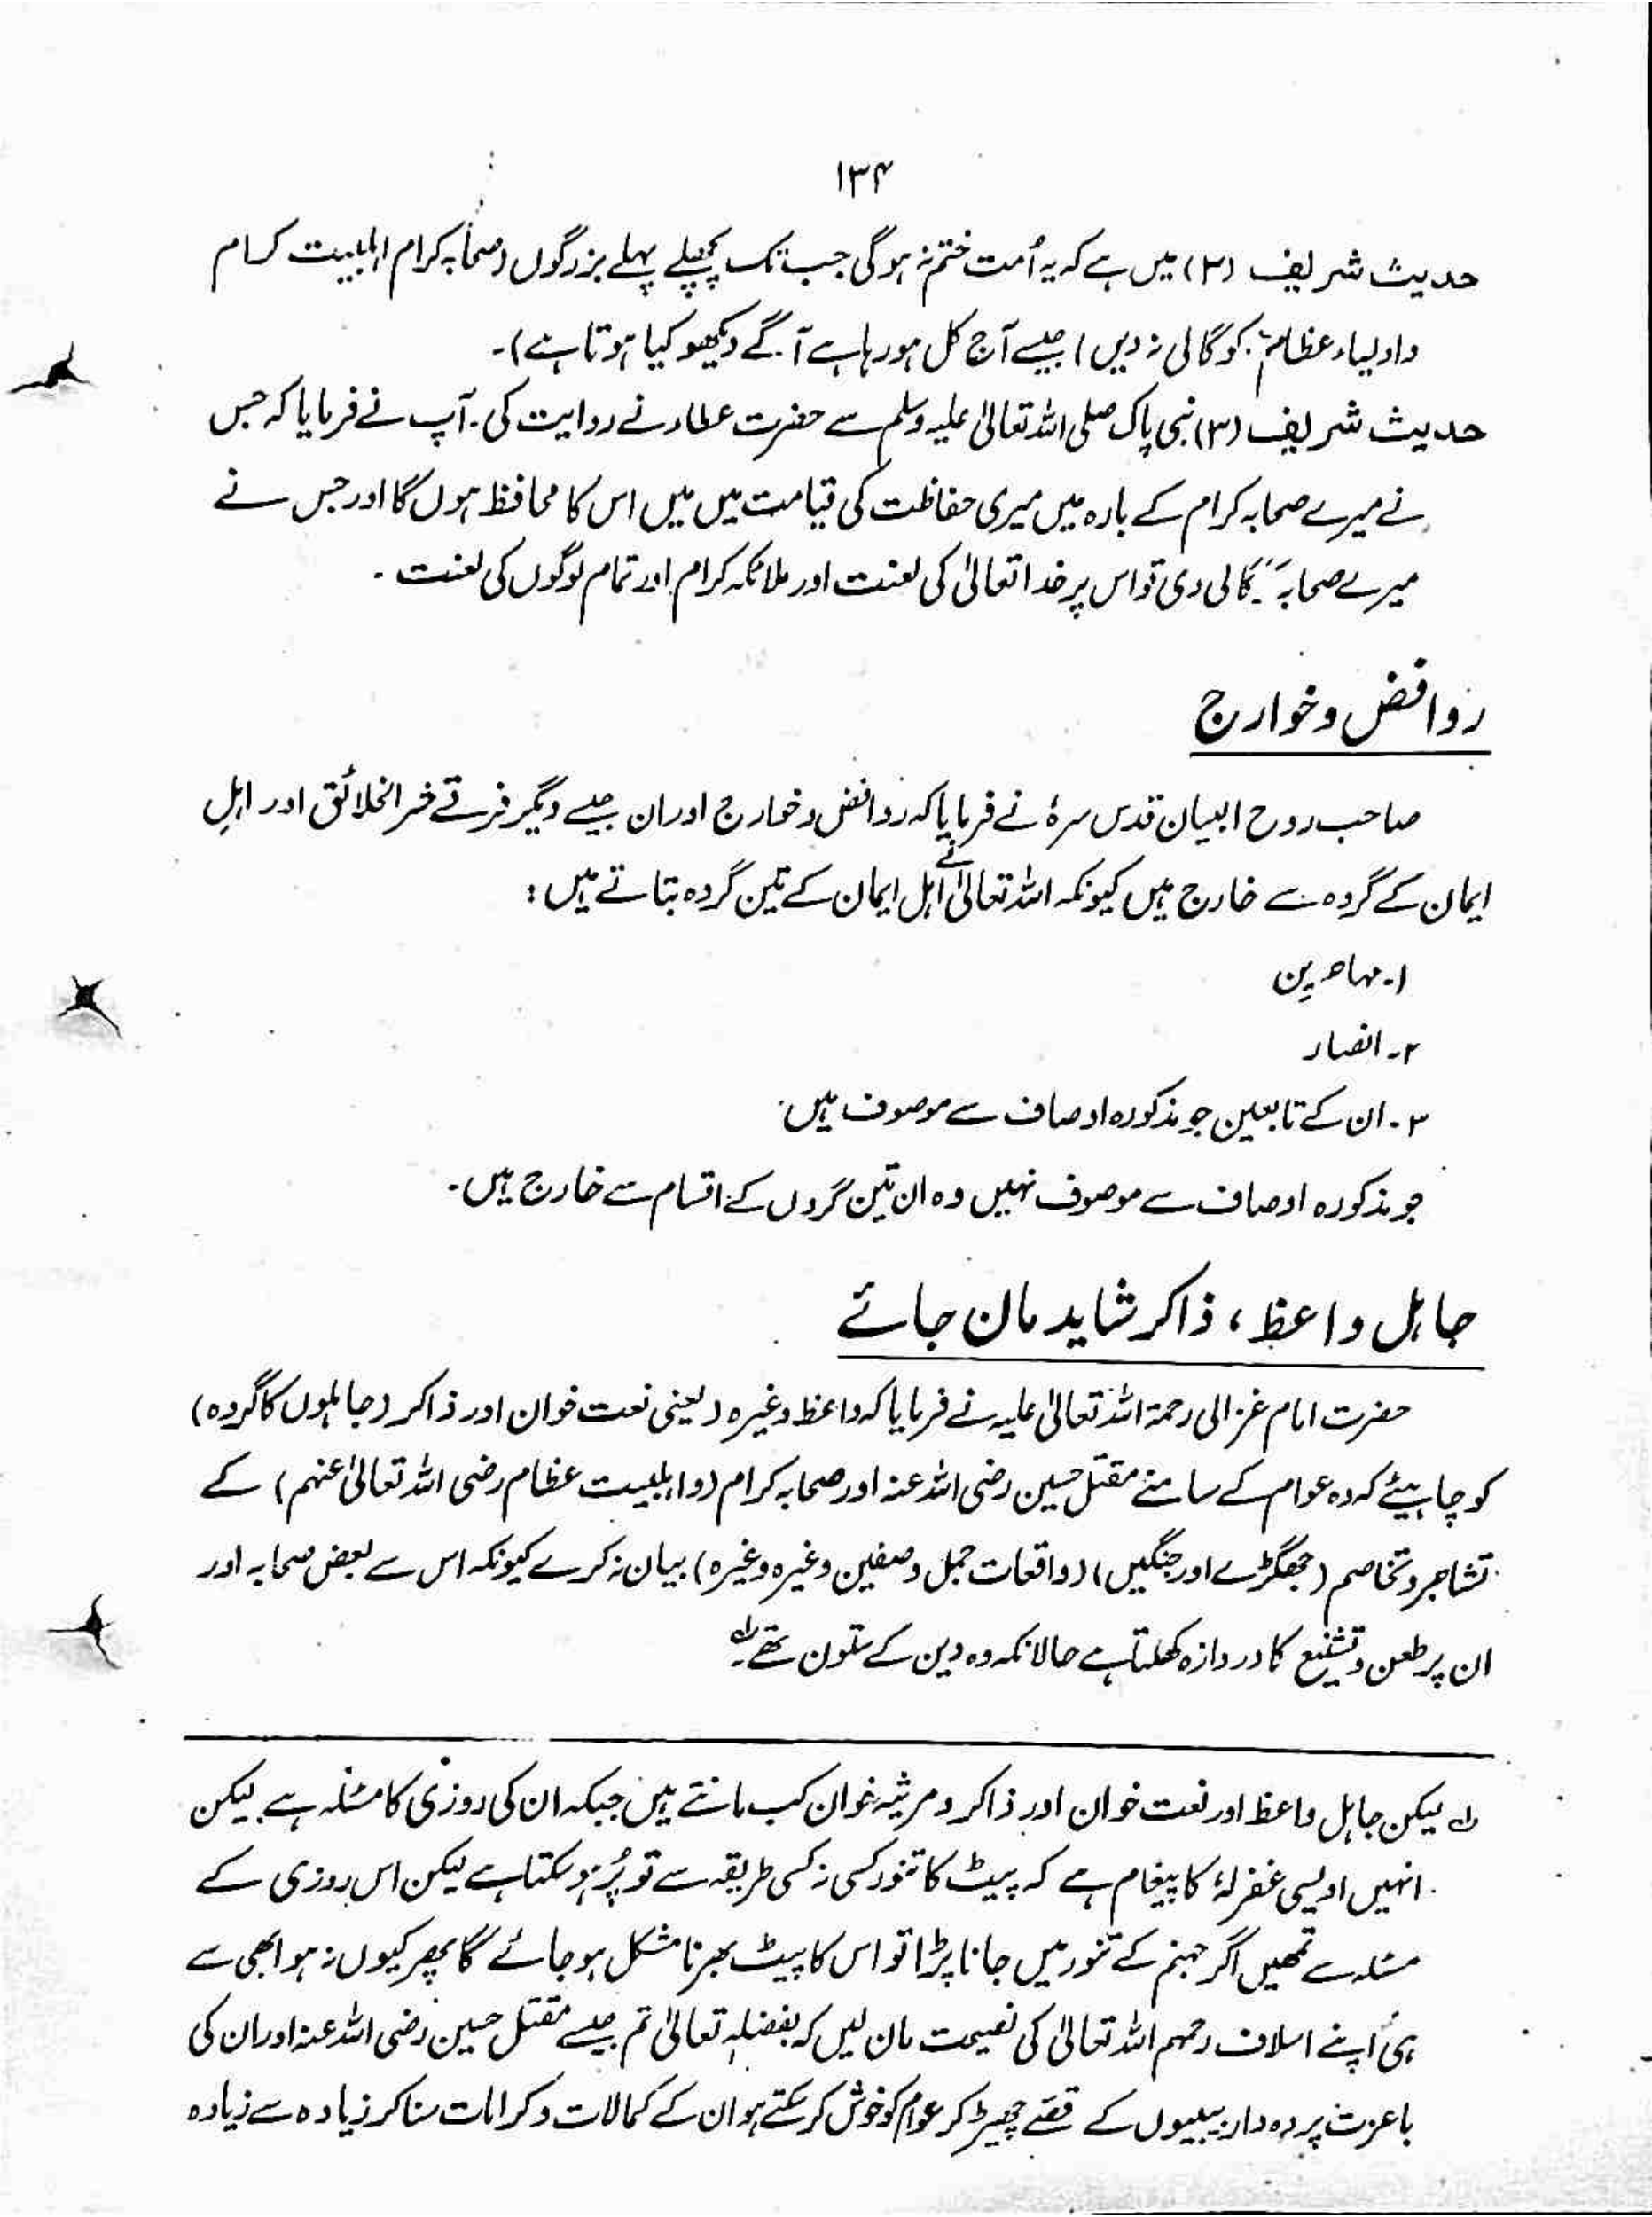 ۱۳۴
حدیث شریف (۲) میں ہے کہ یہ اُمت ختم نہ ہوگی جب تک پچھلے پہلے بزرگوں (صحابہ کرام اہلبیت کرام
واولیاء عظام کو گالی نہ دیں) جیسے آج کل ہو رہا ہے آگے دیکھو کیا ہوتا ہے)۔
حدیث شریف (۳) نبی پاک صلی اللہ تعالیٰ علیہ وسلم سے حضرت عطاء نے روایت کی۔ آپ نے فرمایا کہ جس
نے میرے صحابہ کرام کے بارہ میں میری حفاظت کی قیامت میں میں اس کا محافظ ہوں گا اور جس نے
میرے صحابہ گالی دی تو اس پر خدا تعالیٰ کی لعنت اور ملائکہ کرام اور تمام لوگوں کی لعنت ۔
روافض و خوارج
صاحب روح البیان قدس سرہٗ نے فرمایا کہ روافض و خوارج اور ان جیسے دیگر فرقے شر الخلائق اور اہلِ
ایمان کے گروہ سے خارج ہیں کیونکہ اللہ تعالیٰ نے اہل ایمان کے تین گروہ بتاتے ہیں :
۱۔ مہاجرین
۲۔ انصار
۳۔ ان کے تابعین جو مذکورہ اوصاف سے موصوف ہیں۔
جو مذکورہ اوصاف سے موصوف نہیں وہ ان تین گروں کے اقسام سے خارج ہیں۔
جاہل واعظ، ذاکر شاید مان جائے
حضرت امام غزالی رحمۃ اللہ تعالیٰ علیہ نے فرمایا کہ واعظ وغیرہ (یعنی نعت خوان اور ذاکر (جاہلوں کا گروہ)
کو چاہیئے کہ وہ عوام کے سامنے مقتل حسین رضی اللہ عنہ اور صحابہ کرام (و اہلبیت عظام رضی اللہ تعالیٰ عنہم) کے
تشاجر و تخاصم (جھگڑے اور جنگیں) (واقعات جمل و صفین وغیرہ وغیرہ) بیان نہ کرے کیونکہ اس سے بعض صحابہ اور
ان پر طعن و تشنیع کا دروازہ کھلتا ہے حالانکہ وہ دین کے ستون تھے۔ لہ
لہ لیکن جاہل واعظ اور نعت خوان اور ذاکر و مرثیہ خوان کب مانتے ہیں جبکہ ان کی روزی کا مسئلہ ہے لیکن
انہیں اویسی غفرلہٗ کا پیغام ہے کہ پیٹ کا تنور کسی نہ کسی طریقہ سے تو پُر ہو سکتا ہے لیکن اس روزی کے
مسئلہ سے تمھیں اگر جہنم کے تنور میں جانا پڑا تو اس کا پیٹ بھرنا مشکل ہو جائے گا پھر کیوں نہ ہو ابھی سے
ہی اپنے اسلاف رحمہم اللہ تعالیٰ کی نصیحت مان لیں کہ بفضلہٖ تعالیٰ تم جیسے مقتل حسین رضی اللہ عنہ اور ان کی
باعزت پردہ دار بیبیوں کے قصے چھیڑ کر عوام کو خوش کر سکتے ہو ان کے کمالات و کرامات سنا کر زیادہ سے زیادہ